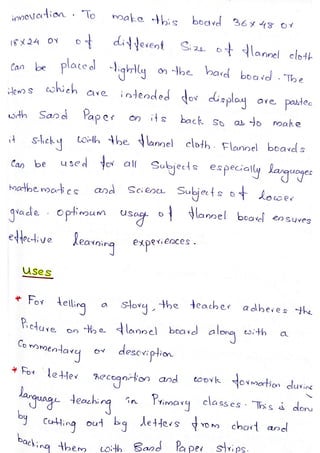 innovation. To make this board 36x48 or
18x24 or of different Size of flannel cloth
can be placed tightly on the hard board. The
items which are intended for display are pasted
with Sand Paper on its back so as to make
it sticky with the flannel cloth. Flannel boards
can be used for all Subjects especially languages
mathematics and Science Subjects of lower
grade. optimum usage of flannel board ensures
effective learning experiences.
uses
* For telling a story, the teacher adheres the
Picture on the flannel board along with a
Commentary or description
* For letter recognition and work formation during
language teaching in Primary classes. This is done
by cutting out big letters from chart and
backing them with Sand Paper strips.